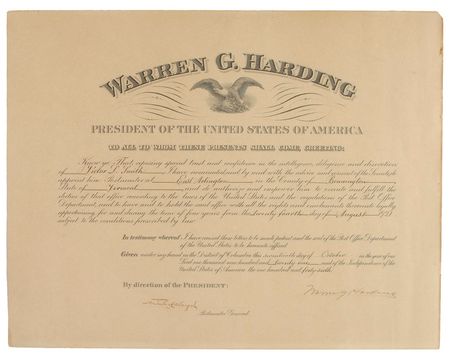 WARREN G. HARDING
PRESIDENT OF THE UNITED STATES OF AMERICA
TO ALL TO WHOM THESE PRESENTS SHALL COME, GREETING:
Know ye That, reposing special trust and confidence in the intelligence, diligence and discretion
of Smith I have nominated and by and with the advice and consent of the Senate do
appoint him Postmaster at East Arlington in the County of Bennington
State of Vermont and do authorize and empower him to execute and fulfill the
duties of that office according to the laws of the United States and the regulations of the Post Office
Department, and to have and to hold the said office with all the rights and emoluments thereunto legally
appertaining for and during the term of four years from the day of August 1921
subject to the conditions prescribed by law.
In testimony whereof I have caused these letters to be made patent and the seal of the Post Office Department
of the United States to be hereunto affixed.
Given under my hand in the District of Columbia this day of October in the year of our
Lord one thousand nine hundred and twenty one and of the Independence of the
United States of America the one hundred and forty-sixth.
By direction of the PRESIDENT:
Warren G Harding
Postmaster General